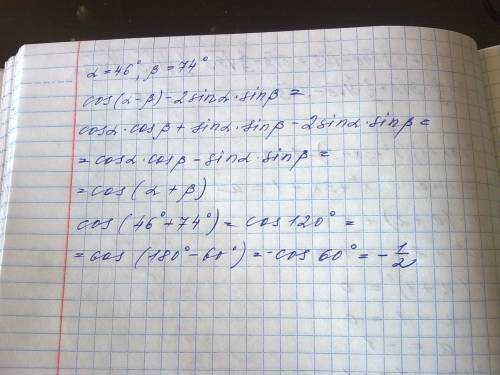 α = 46°, β = 74°
cos(α-β) - 2sinα·sinβ =
cosα·cosβ + sinα·sinβ - 2sinα·sinβ =
= cosα·cosβ - sinα·sinβ =
= cos(α + β)
cos(46° + 74°) = cos 120° =
= cos(180° - 60°) = -cos 60° = -1/2